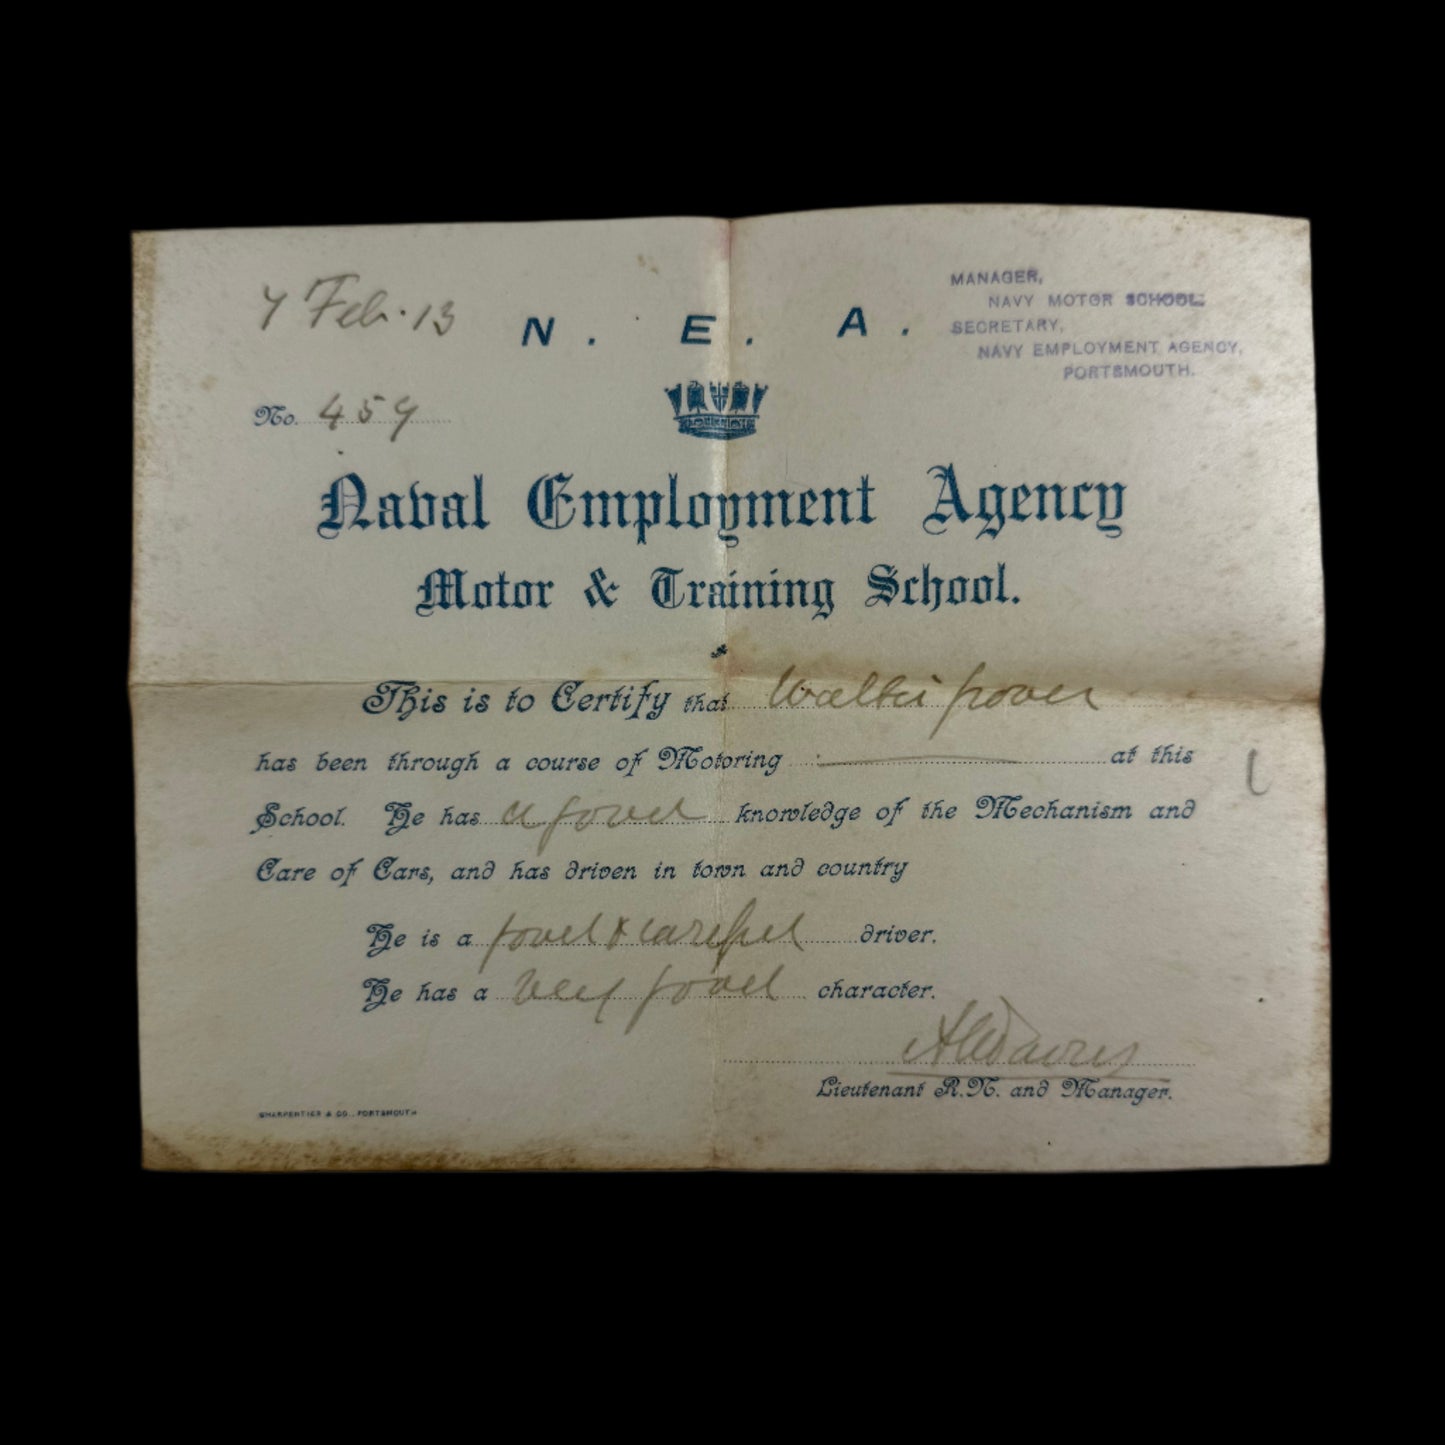 7 Feb. 13
N. E. A.
MANAGER,
NAVY MOTOR SCHOOL.
SECRETARY,
NAVY EMPLOYMENT AGENCY,
PORTSMOUTH.
No. 459
Naval Employment Agency
Motor & Training School.
This is to Certify that Walter
has been through a course of Motoring at this
School. He has a good knowledge of the Mechanism and
Care of Cars, and has driven in town and country
He is a good & careful driver.
He has a very good character.
Lieutenant R.N. and Manager.
CHARPENTIER & CO., PORTSMOUTH